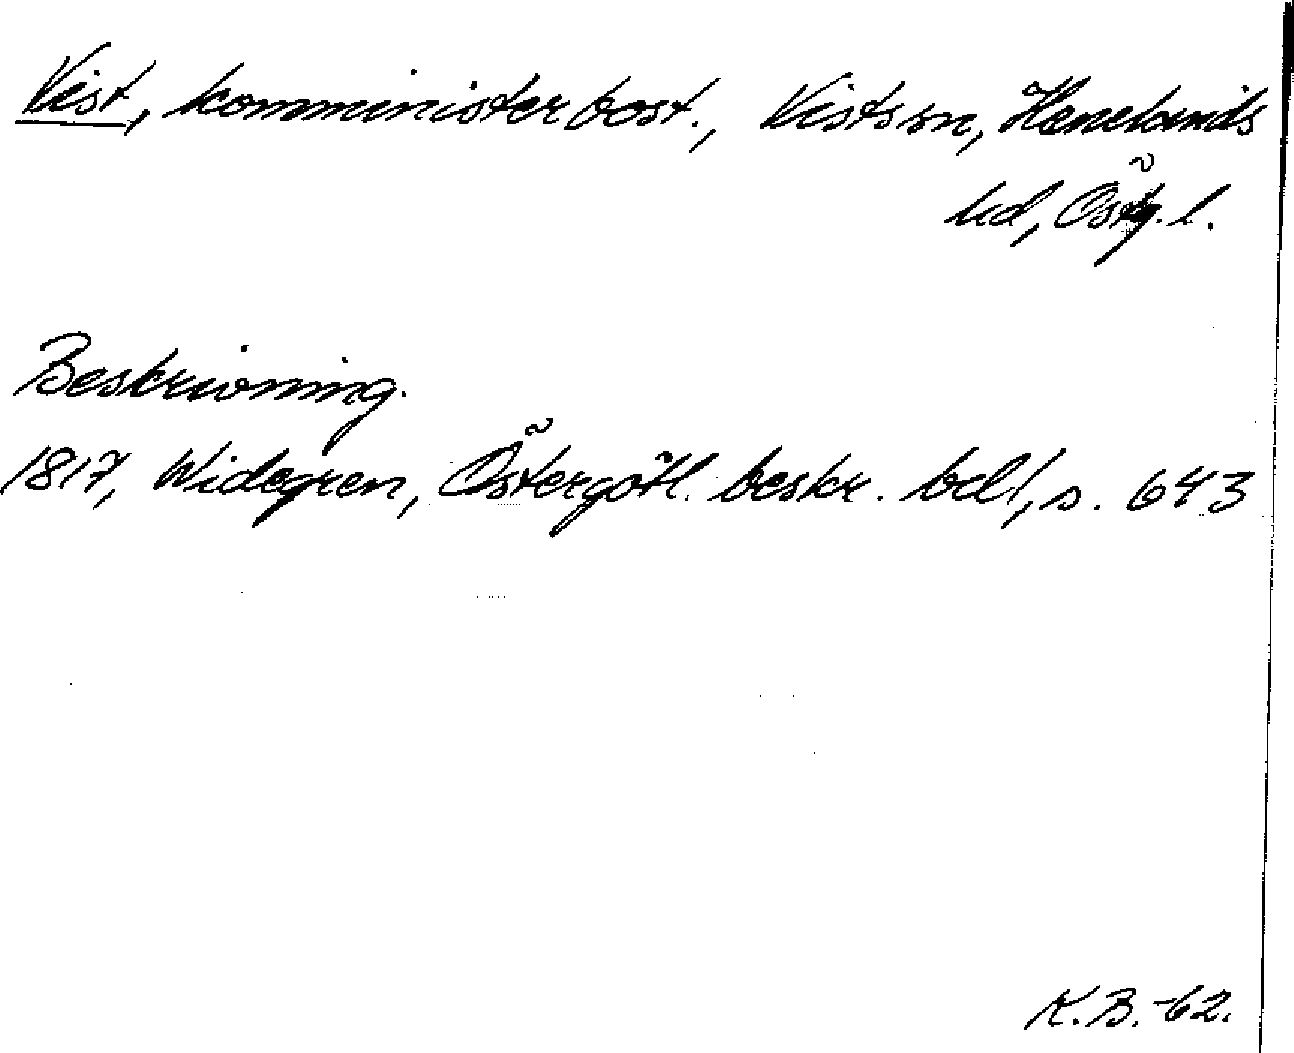 Vist, komministerbost., Vists sn, Hanekinds
hd, Östg. l.
Beskrivning.
1817, Widegren, Östergötl. beskr. bd I, s. 643
K.B. -62.